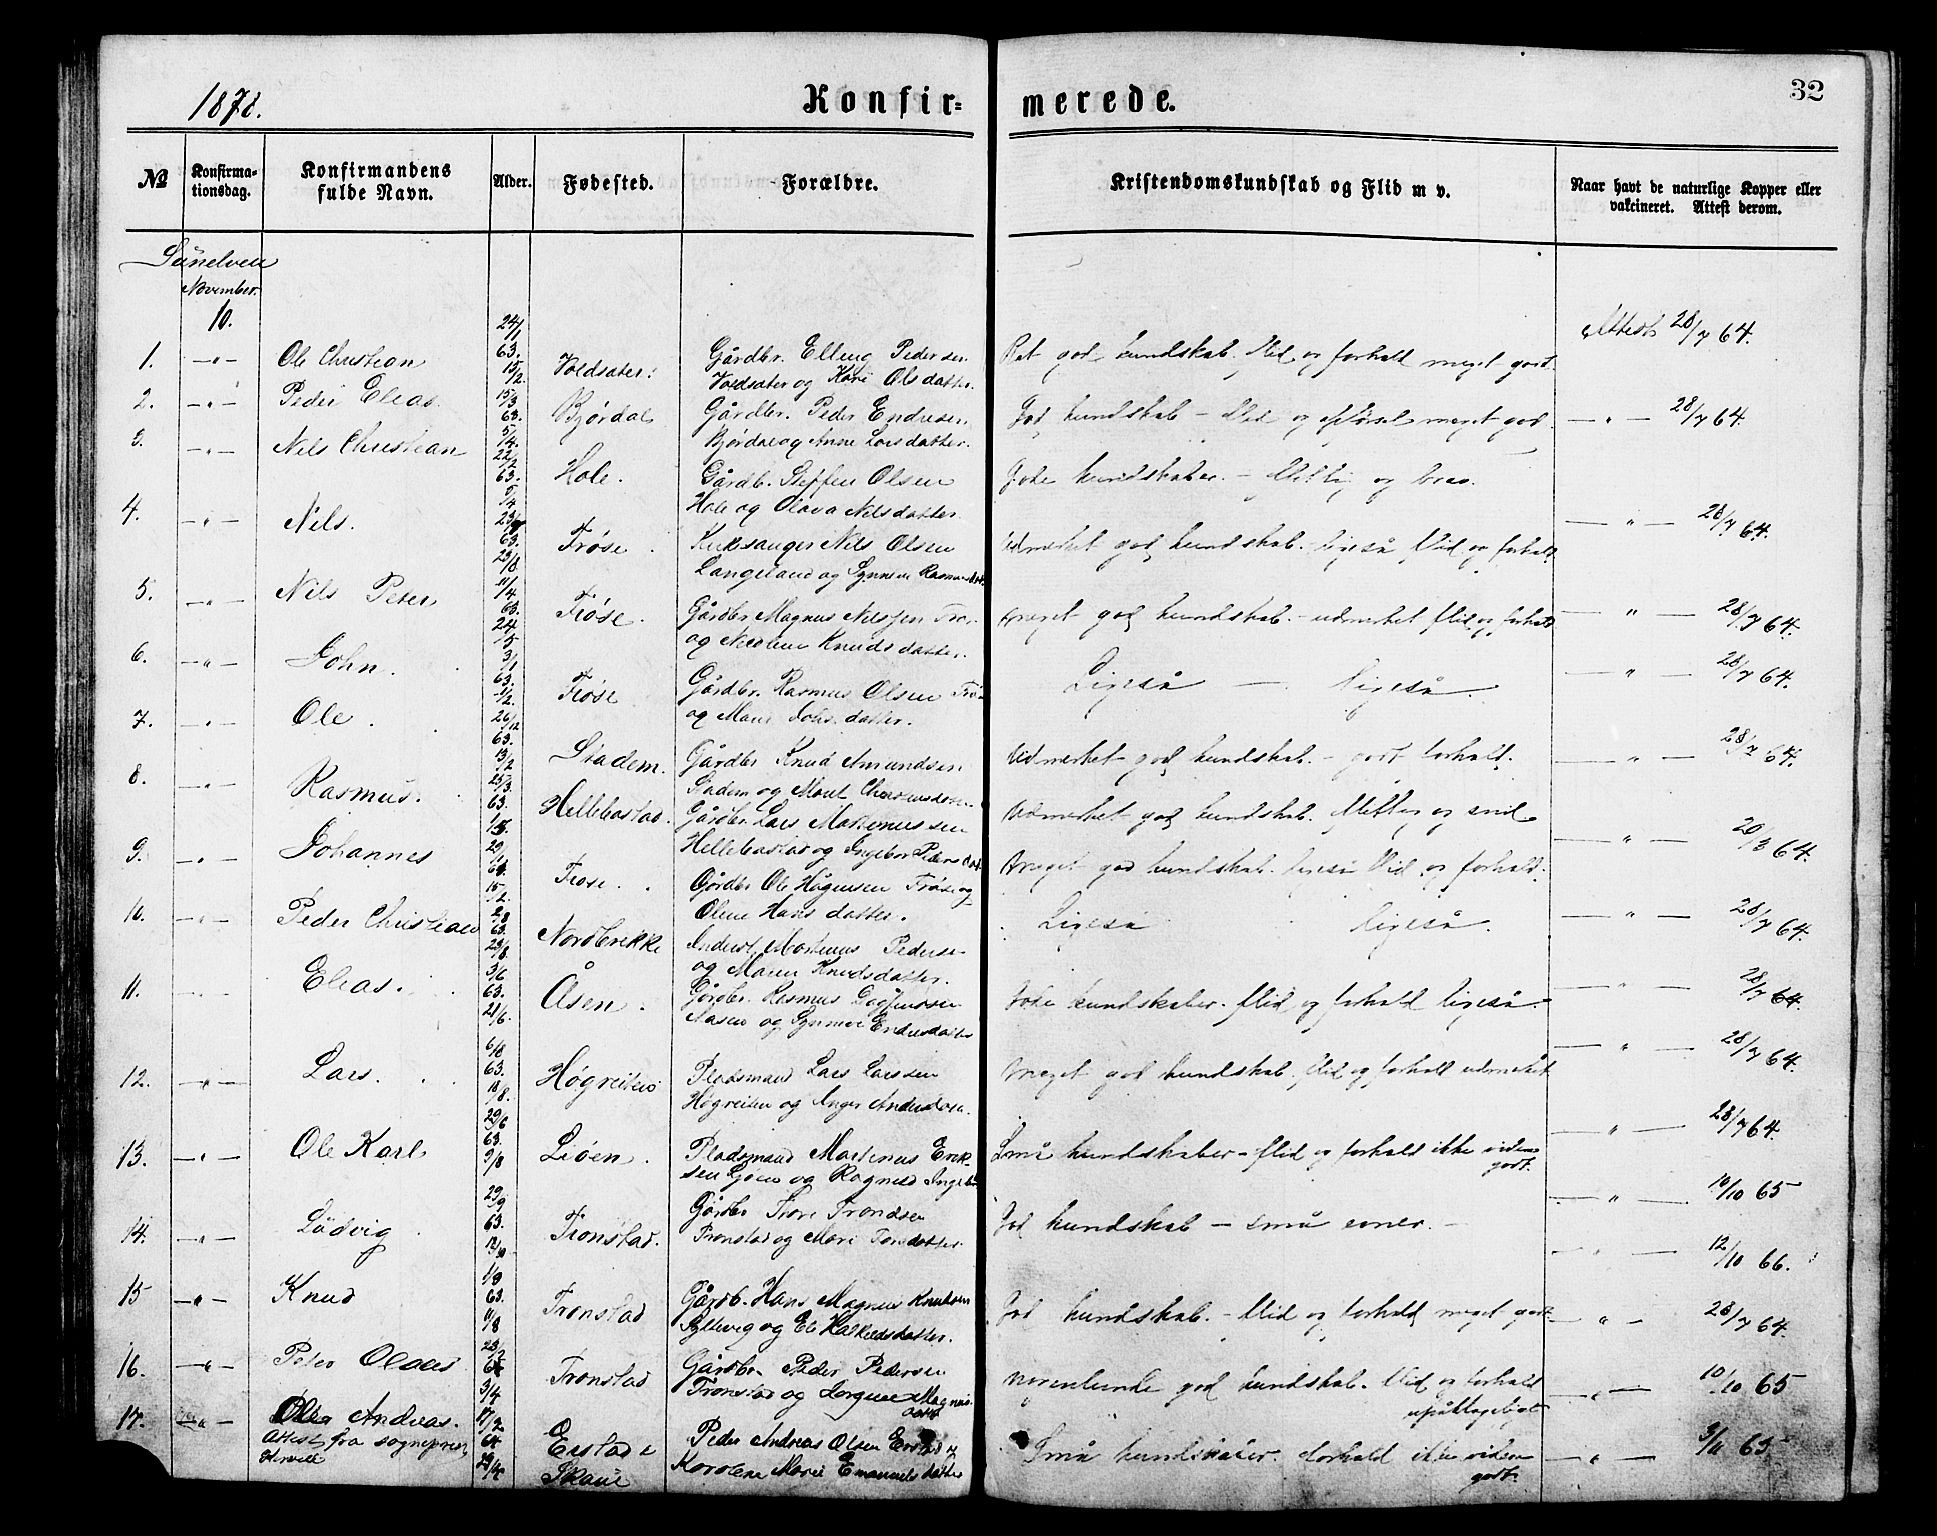 1878.
Konfir=
merede.
32
No
Konfirma-
tionsdag.
Konfirmandens
fulde Navn.
Alder.
Fødested.
Forældre.
Kristendomskundskab og Flid m v.
Naar havt de naturlige Kopper eller
vakcineret. Attest derom.
Sunelven
November.
10.
1. -"- Ole Christian 24/1 63. 15/2. Voldsæter. Gårdbr. Elling Pedersen
Voldsæter og Kari Olsdatter. Ret god kundskab. Flid og forhold meget godt. Attest 28/7 64.
2. -"- Peder Elias. 15/3 63. 5/4. Bjørdal Gårdbr. Peder Endresen
Bjørdal og Anne Larsdatter. God kundskab - Flid og opførsel meget god. -"- 28/7 64.
3. -"- Nils Christian 22/2 63. 5/4 Hole. Gårdb. Steffen Olsen
Hole og Olava Nilsdatter. Gode kundskaber. - Flittig og brav.
4. -"- Nils. 63. 23/8 Frøse. Kirksanger Nils Olsen
Langeland og Synneve Rasmusdat. Udmærket god kundskab. - ligeså flid og forhold. -"- 28/7 64.
5. -"- Nils Peter 11/4 63. 24/5 Frøse. Gårdbr Magnus Nilssen
og Nicoline Knudsdatter. Meget god kundskab. - udmærket flid og forhold -"- 28/7 64.
6. -"- John. 3/1 63. Frøse Gårdbr. Rasmus Olsen
og datter. Ligeså - ligeså. -"- 28/7 64.
7. -"- Ole. 26/12 63. 13/2 Stadem. Gårdbr Knud Amundsen
Stadem og Udmærket god kundskab. - godt forhold. -"- 28/7 64.
8. -"- Rasmus. 25/3. 63. Hellebostad. Gårdbr. Lars Martinussen
Hellebostad og Ingebor Peders dat. Udmærket god kundskab. Flittig og snil -"- 20/3 64.
9. -"- Johannes 29/1 63. 15/2. Frøse. Gårdbr Ole Hågensen Frøse og
Oline Hans datter. Meget god kundskab. ligeså flid og forhold. -"- 28/7 64.
10. -"- Peder Christian 63. 23/8. Nordbrekke Martinus Peders
og Maren Knudsdatter. Ligeså ligeså. -"- 28/7 64
11. Elias. 3/6 63. 21/6. Åsen. Gårdbr. Rasmus
Aasen og Synneve Endresdatter Gode kundskaber. flid og forhold ligeså. -"- 28/7 64.
12. -"- Lars. 6/8 63. Høgreiten Pladsmand Lars Larssen
Høgreiten og Meget god kundskab. flid og forhold udmærket -"- 28/7 64.
13. -"- Ole Karl 29/6 63. 9/8 Liøen. Pladsmand Martinus Erik-
sen og Små kundskaber - flid og forhold ikke videre
godt. -"- 10/10 65
14. -"- Ludvig 29/9 63. Tronstad. Gårdbr Trondsen
Tronstad og God kundskab - små evner. -"- 12/10 66.
15 -"- Knud 63. Tronstad Gårdb. Hans Magnus Knudsen
Syltevig og God kundskab. - Flid og forhold meget godt. -"- 28/7 64.
16. -"- Peter Olaus 3/4 Tronstad Gårdbr Peder Pedersen
Tronstad og Magnus
datter nogenlunde god kundskab. Flid og forhold
upåklageligt -"- 10/10 65
17. -"- Andreas. 17/2 64 Erstad i
Skaue Peder Andreas Olsen Erstad og
Karolene Marie Emanuels datter Små kundskaber. forhold ikke videre
godt. -"- 65
Attest fra sognepræst